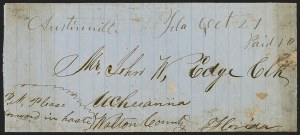 Austinville Fla Oct 21
Paid 10
Mr John W. Edge Clk
Uchesanna
P.M. Please Walton County
forward in haste Florida